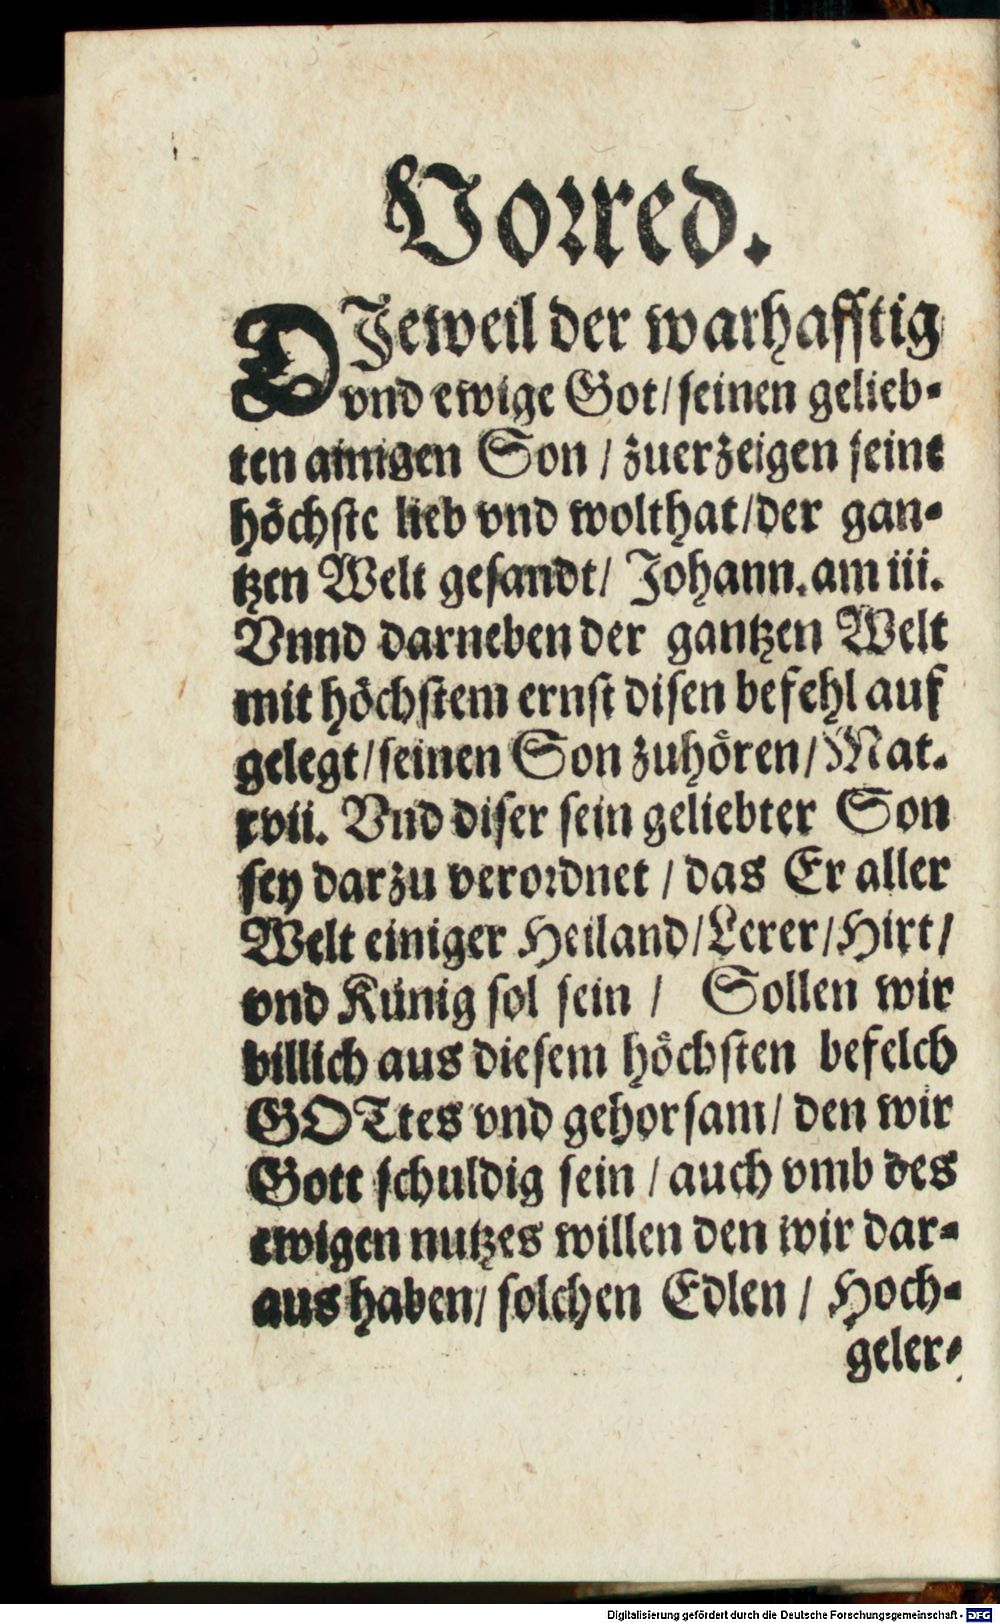 Vorred.
DJeweil der warhafftig
vnd ewige Got/ seinen gelieb-
ten ainigen Son / zuerzeigen seine
höchste lieb vnd wolthat/der gan-
tzen Welt gesandt/ Johann. am iii.
Vnnd darneben der gantzen Welt
mit höchstem ernst disen befehl auf
gelegt/seinen Son zuhören/Mat.
xvii. Vnd diser sein geliebter Son
sey darzu verordnet / das Er aller
Welt einiger Heiland/Lerer/Hirt/
vnd Künig sol sein / Sollen wir
billich aus diesem höchsten befelch
GOTtes vnd gehorsam/ den wir
Gott schuldig sein / auch vmb des
ewigen nutzes willen den wir dar-
aus haben/ solchen Edlen / Hoch-
geler-
Digitalisierung gefördert durch die Deutsche Forschungsgemeinschaft - DFG